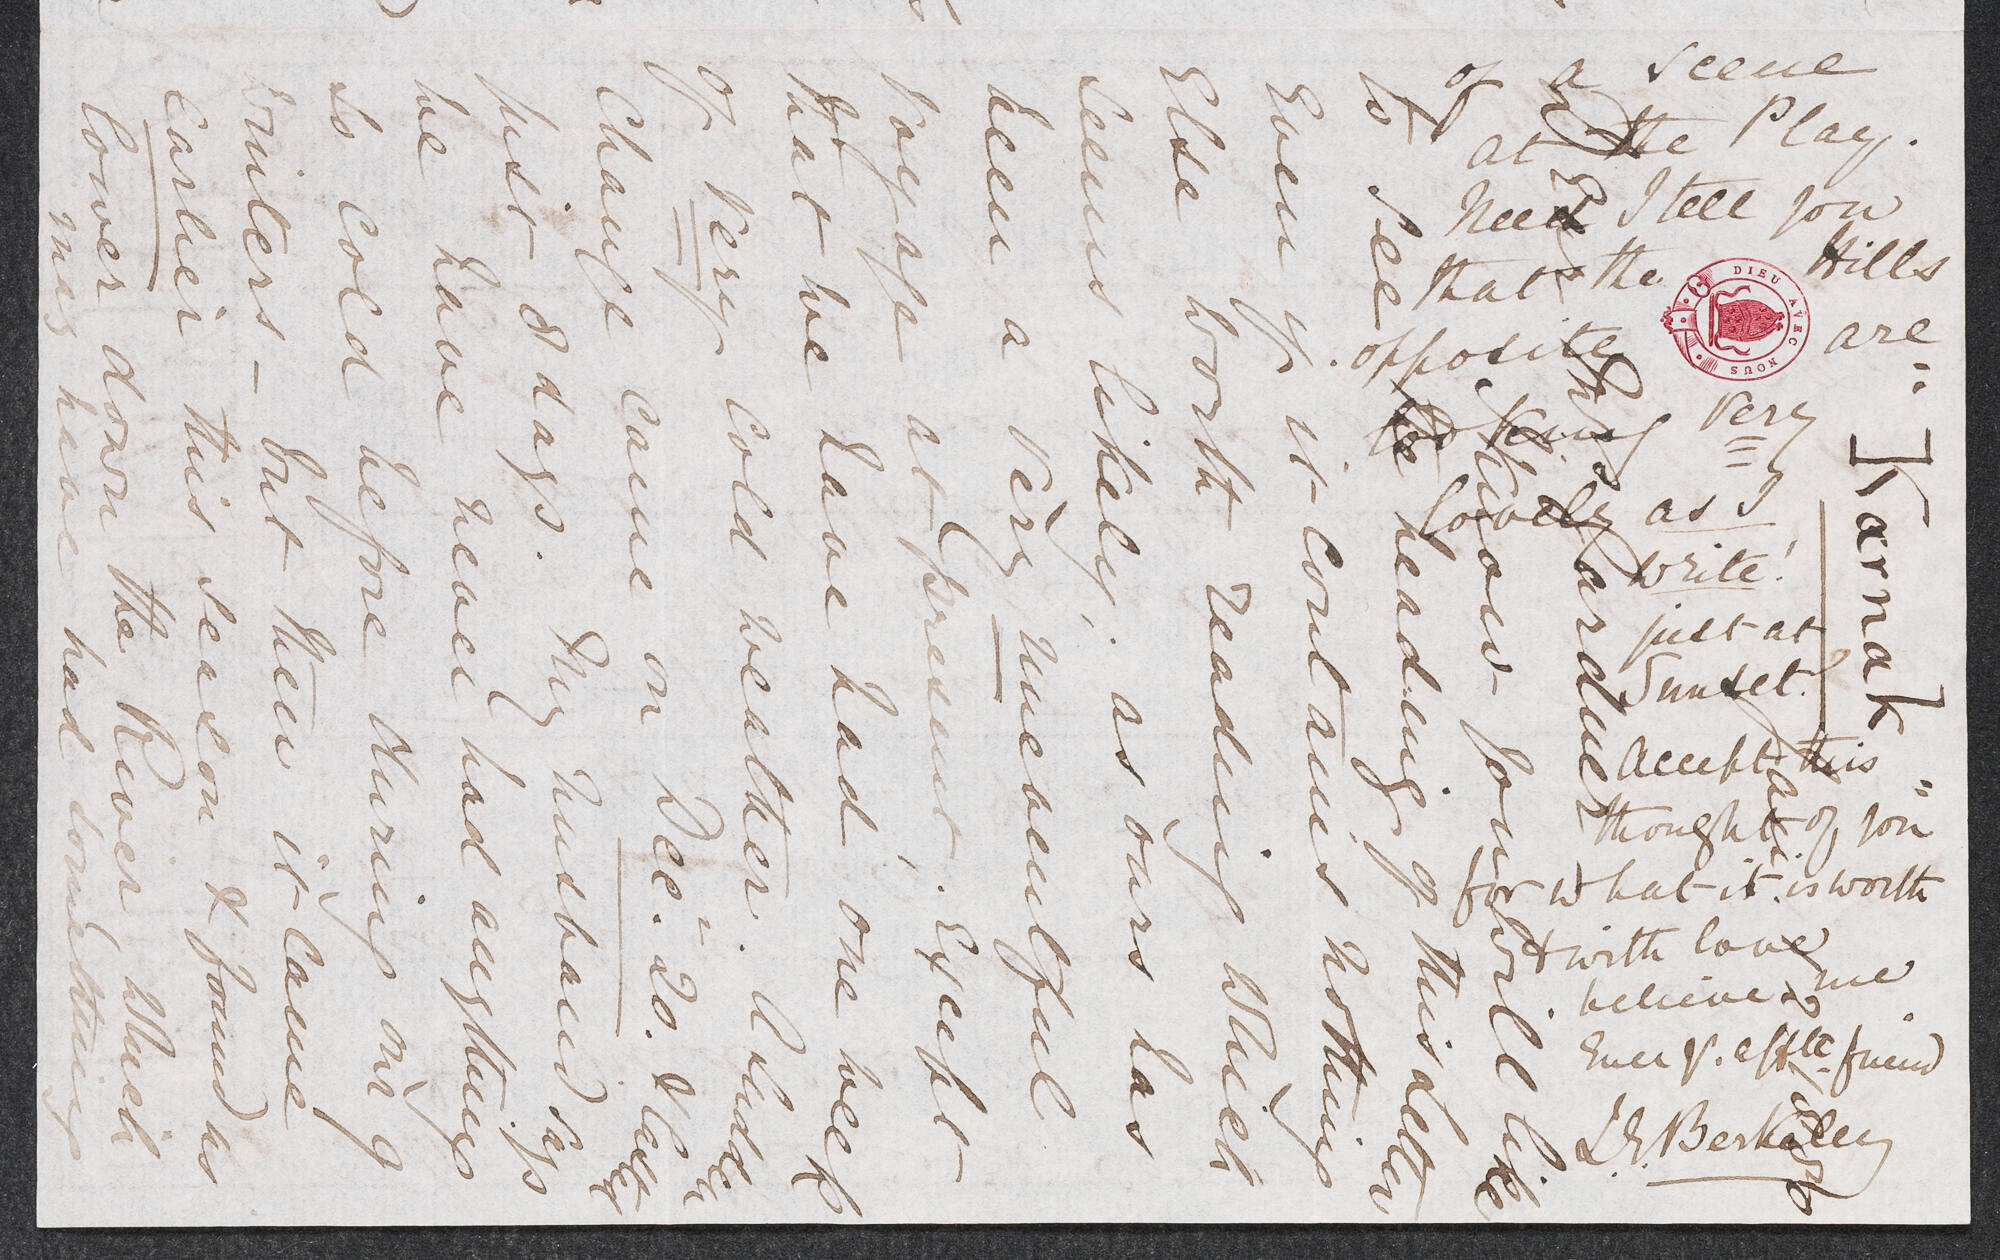 "Karnak"
I know you will like
to see the heading of this letter
Even if it contains nothing
Else worth reading which
seems likely, as ours has
been a very uneventful
voyage at present. Except
that we have had one week
of very cold weather. A sudden
change came on Dec: 20. & lasted
just 8 days. My Husband says
we have never had anything
so cold before during our 9
winters - but then it came
earlier this season & found us
lower down the River which
may have had something
of a scene
at the Play.
Need I tell you
that the Hills
opposite are
looking very
lovely as I
write!
just at
Sunset.
Accept this
thought of you
for what it is worth
& with love
believe me
Ever yr. affte friend
L. E. Berkeley
DIEU AVEC NOUS